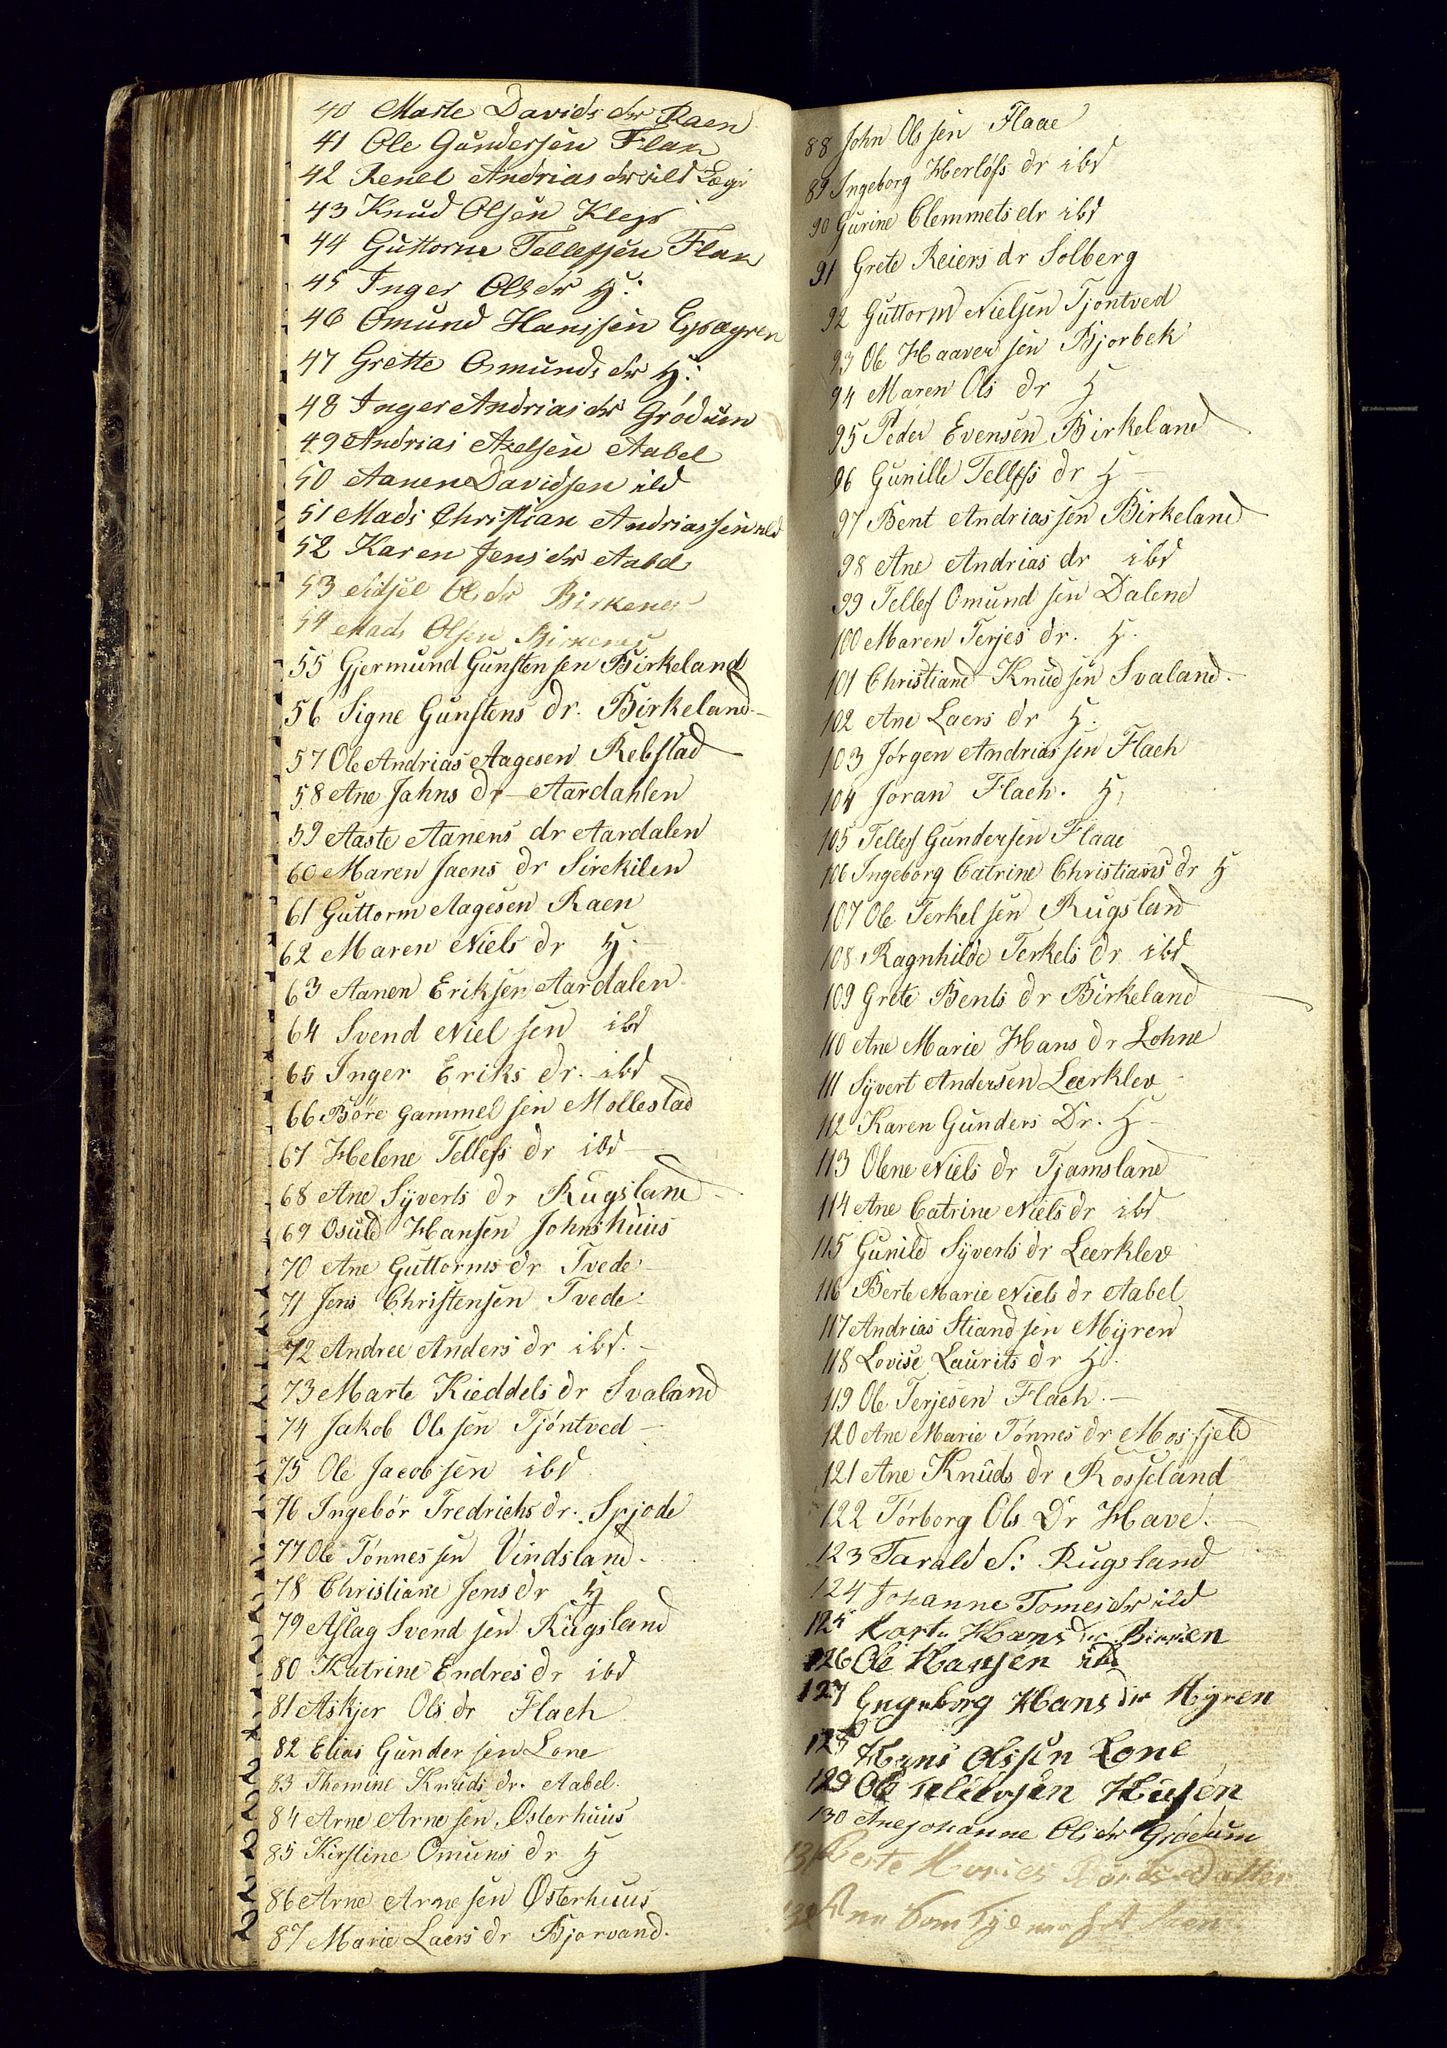 40 Marte Davids dr Raen
41 Ole Gundersen Flak
42 Renel Andrias dr ild
43 Knud Olsen Klep
44 Guttorm Tellefsen Flak
45 Inger Ols dr H:
46 Omund Hansen
47 Grette Omunds dr H:
48 Inger Andrias dr Grödum
49 Andrias Axelsen Aabel
50 Aanen Davidsen ild
51 Mads Christian Andriassen ild
52 Karen Jens dr Aabel
53 Sidsel Ols dr Birkenes
54 Mads Olsen Birkenes
55 Gjermund Gunstensen Birkeland
56 Signe Gunstens dr. Birkeland
57 Ole Andrias Aagesen Rebstad
58 Ane Jahns dr Aardahlen
59 Aaste Aanens dr Aardalen
60 Maren Jaens dr Sirekilen
61 Guttorm Aagesen Raen
62 Maren Niels dr H.
63 Aanen Eriksen Aardalen
64 Svend Nielsen ibd
65 Inger Eriks dr. ibd
66 Böre Gammelsen Mollestad
67 Helene Tellefs dr ibd
68 Ane Syverts dr Rugsland
69 Osuld Hansen Johnshuus
70 Ane Guttorms dr Tvede
71 Jens Christensen Tvede
72 Andree Anders dr ibd.
73 Marte Kieddels dr Svaland
74 Jakob Olssen Tjöntved
75 Ole Jacobsen ibd
76 Ingebör Fredrichs dr. Spjode
77 Ole Tönnessen Vindsland
78 Christiane Jens dr H
79 Aslag Svendsen Rugsland
80 Katrine Endres dr ibd
81 Askjer Ols dr Flach
82 Elias Gundersen Lone
83 Thomine Knuds dr. Aabel
84 Arne Arnesen Österhuus
85 Kirstine Omuns dr H
86 Arne Arnesen Österhuus
87 Marie Laers dr Bjorvand.
88 John Olssen Flaae
89 Ingeborg Herlofs dr ibd
90 Gurine Clemmets dr ibd
91 Grete Reiers dr Solberg
92 Guttorm Nielsen Tjöntved
93 Ole Haaversen Bjorbek
94 Maren Ols dr H
95 Peder Evensen Birkeland
96 Gunille Tellefs dr H
97 Bent Andriassen Birkeland
98 Ane Andrias dr ibd
99 Tellef Omundsen Dalene
100 Maren Terjes dr. H.
101 Christiand Knudsen Svaland.
102 Ane Laers dr H.
103 Jørgen Andriassen Flach
104 Joran Flach. H.
105 Tellef Gundersen Flaae
106 Ingeborg Catrine Christians dr H
107 Ole Terkelsen Rugsland
108 Ragnhilde Terkels dr ibd
109 Grete Bents dr Birkeland
110 Ane Marie Hans dr Lohne
111 Syvert Andersen Lærklev
112 Karen Gunders Dr. H
113 Olene Niels dr Tjamsland
114 Ane Catrine Niels dr ibd
115 Gunild Syverts dr Lærklev
116 Berte Marie Niels dr Aabel
117 Andrias Stiandsen Myren
118 Lovise Laurits dr H.
119 Ole Terjesen Flach.
120 Ane Marie Tönnes dr Mosfjeld
121 Ane Knuds dr Rosseland
122 Törborg Ols Dr Have.
123 Tarald S: Rugsland
124 Johanne Tomes dr ild
125 Hans dr
126 Ole Hansen ibd
127 Engeborg Hans dr Myren
128 Hans Olssen Lone
129 Ole Husön
130 Ane Johanne Ols dr Grödum
131 Berte Datter
132